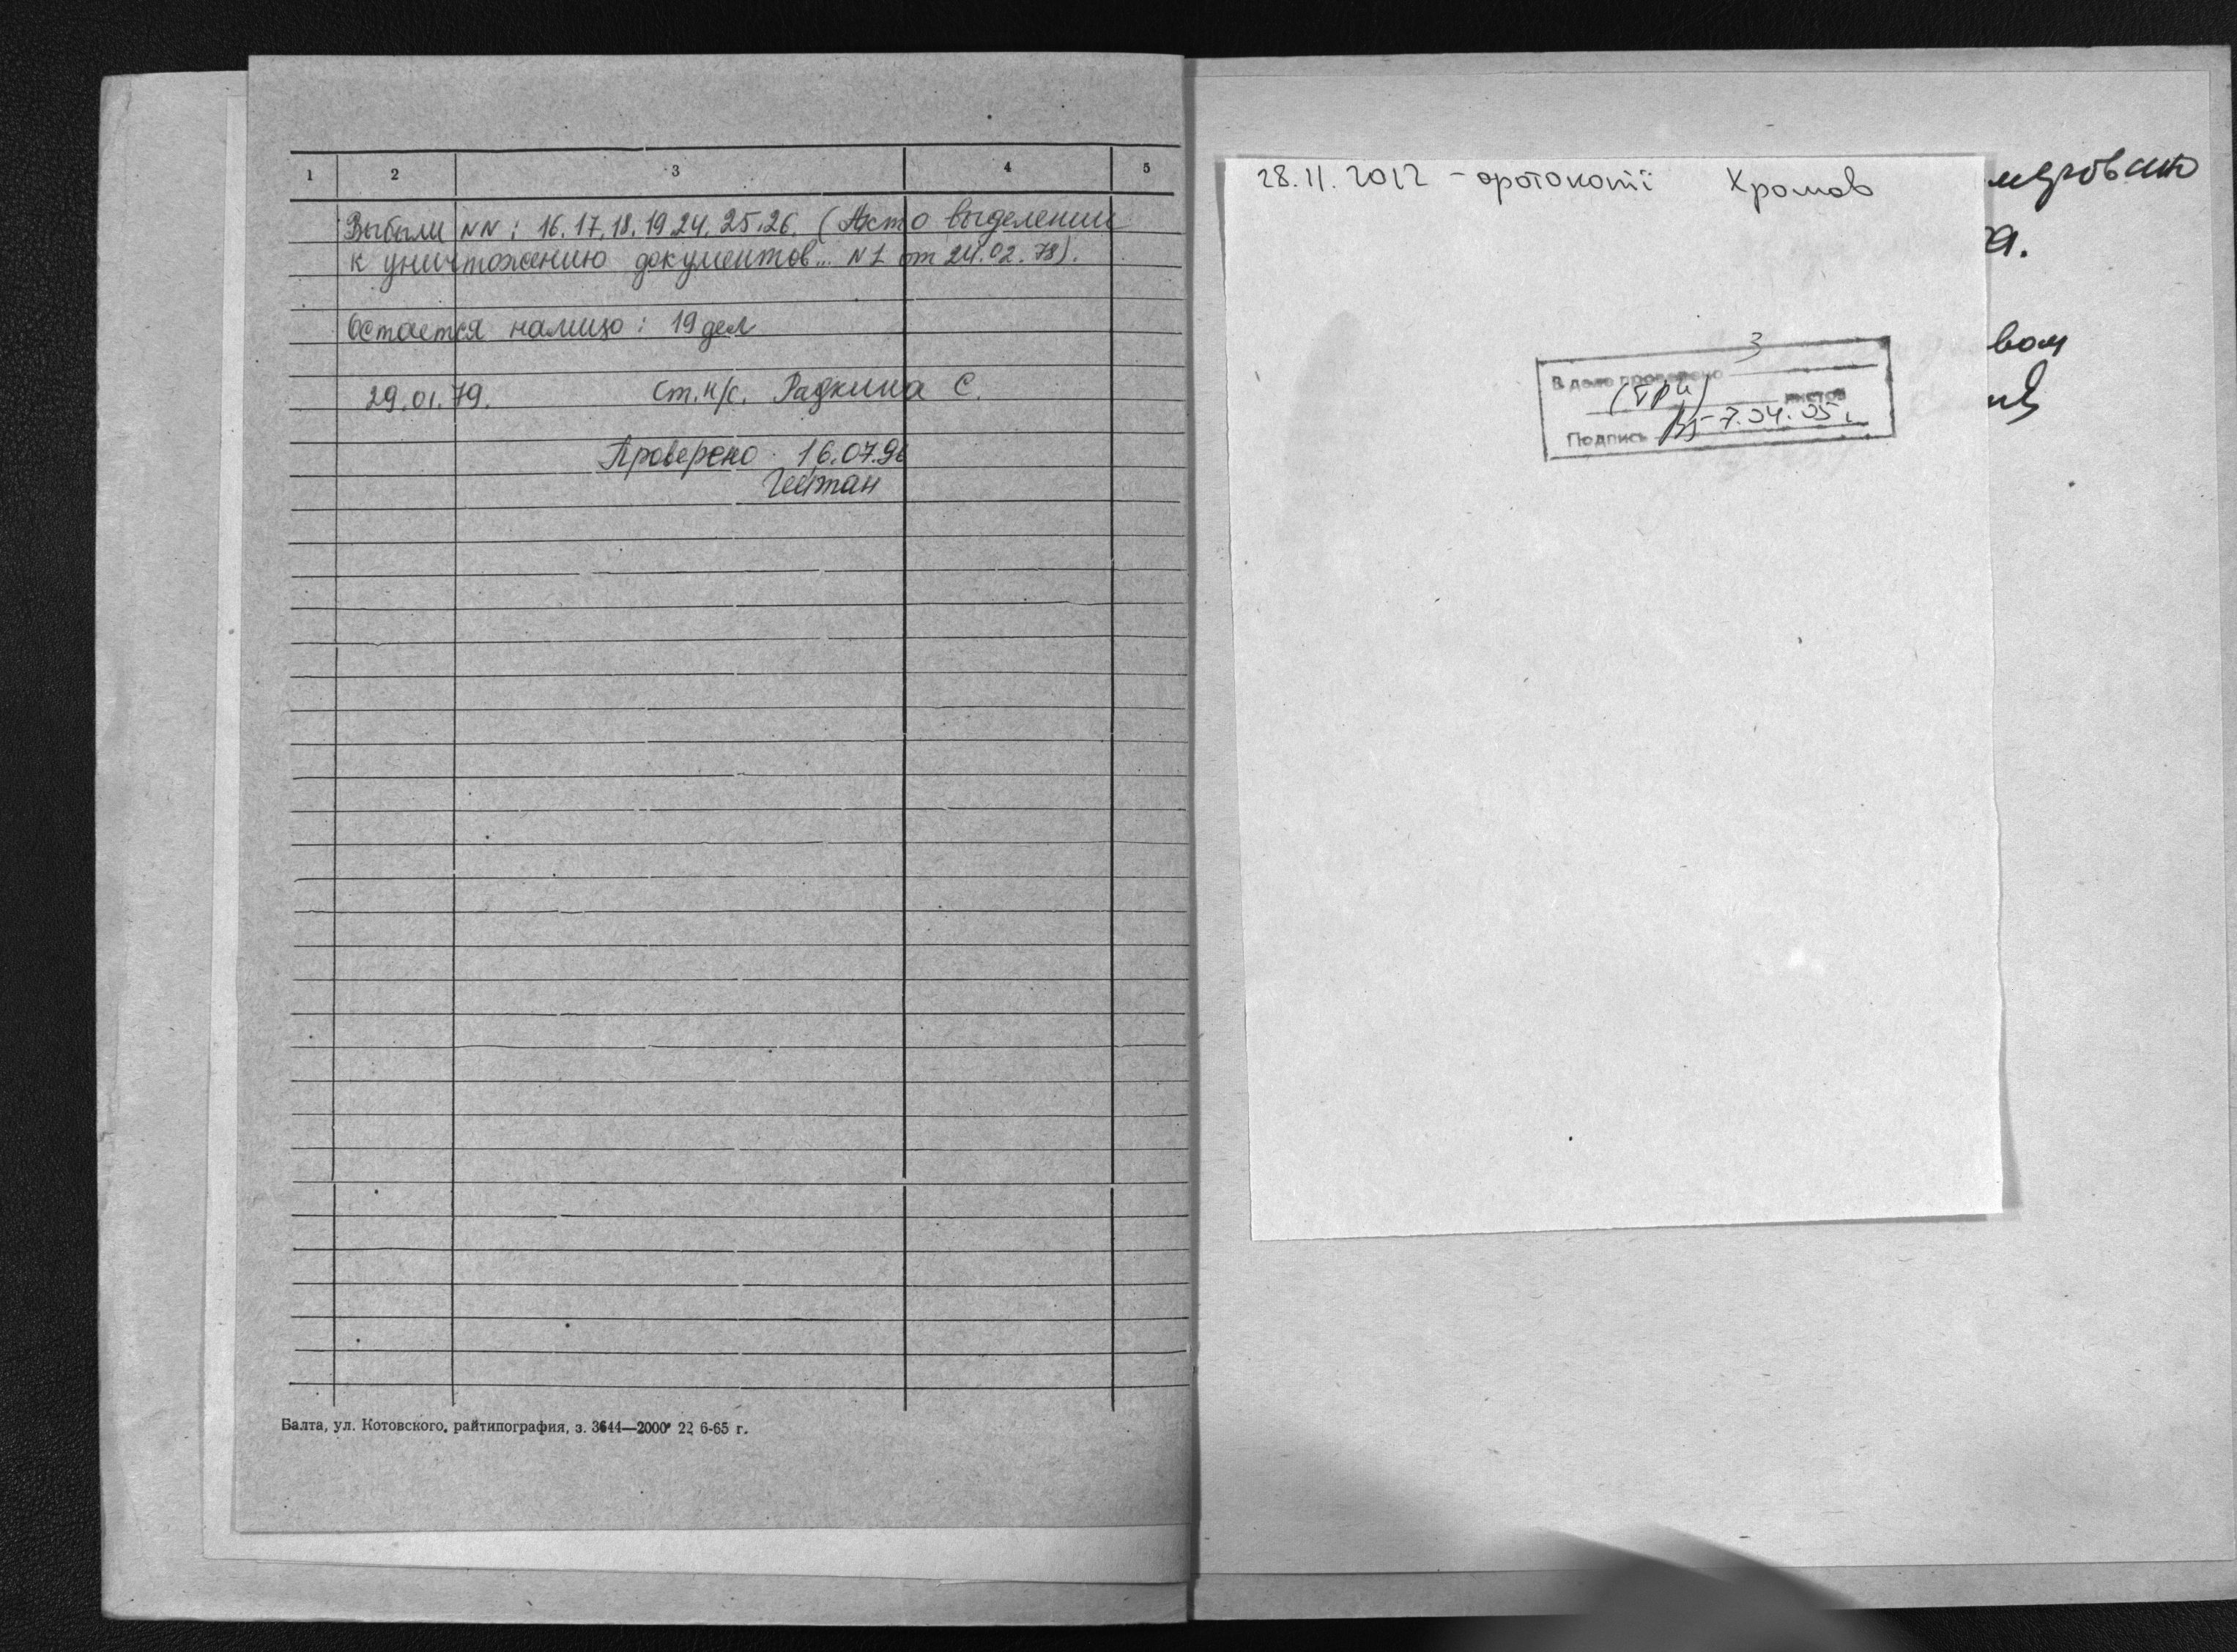 1 2 3 4 5
Выбыли NN: 16.17.18.19.24.25.26. (Акт о выделении
к уничтожению документов... N 1 от 24.02.78).
Остается налицо: 19 дел
29.01.79. Ст. н/с. Радкина С.
Проверено 16.07.96
Балта, ул. Котовского, райтипография, з. 3644—2000 22 6-65 г.
28.11.2012 - фотокопії Хромов
3
В деле проверено
(три) листов
Подпись 7.04.05 г.
вом